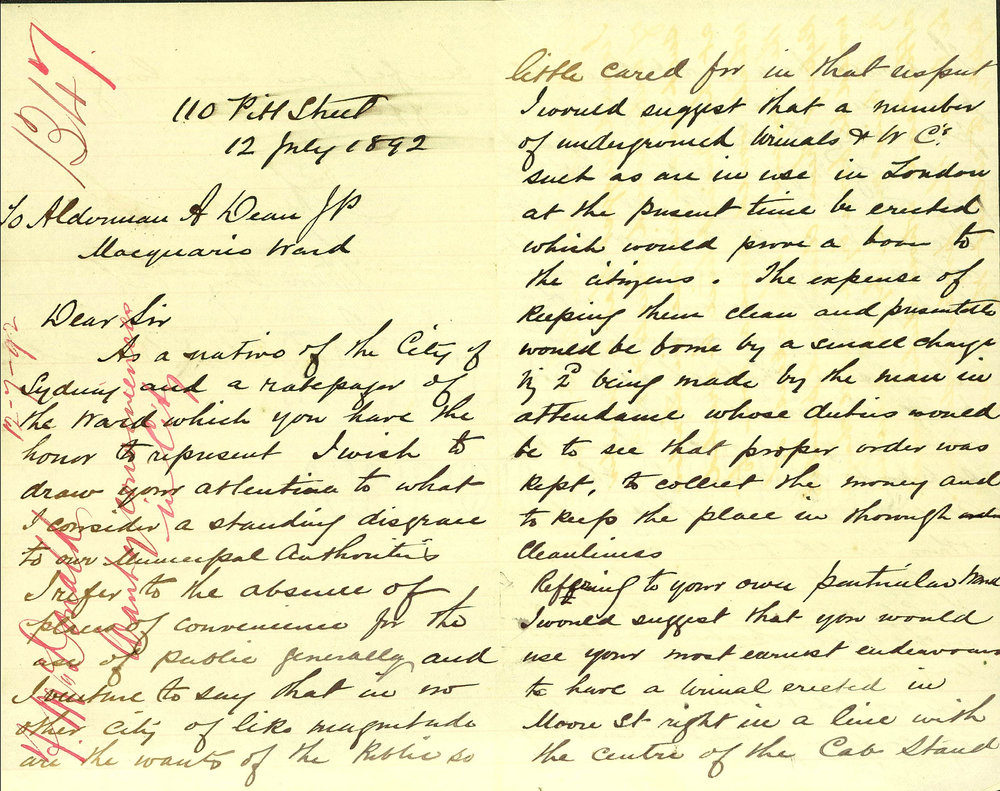 1347
110 Pitt Street
12 July 1892
To Alderman A Dean JP
Macquarie Ward
Dear Sir
As a native of the City of
Sydney and a ratepayer of
the Ward which you have the
honor to represent I wish to
draw your attention to what
I consider a standing disgrace
to our Municipal Authorities
I refer to the absence of
places of convenience for the
use of public generally and
I venture to say that in no
other city of like magnitude
are the wants of the Public so
little cared for in that respect
I would suggest that a number
of underground Urinals & W Cs
such as are in use in London
at the present time be erected
which would prove a boon to
the citizens. The expense of
keeping them clean and presentable
would be borne by a small charge
viz 2d being made by the man in
attendance whose duties would
be to see that proper order was
kept, to collect the money and
to keep the place in thorough
cleanliness
Reffering to your own particular Ward
I would suggest that you would
use your most earnest endeavours
to have a Urinal erected in
Moore St right in a line with
the centre of the Cab Stand
12-7-92
Want of conveniences
in City